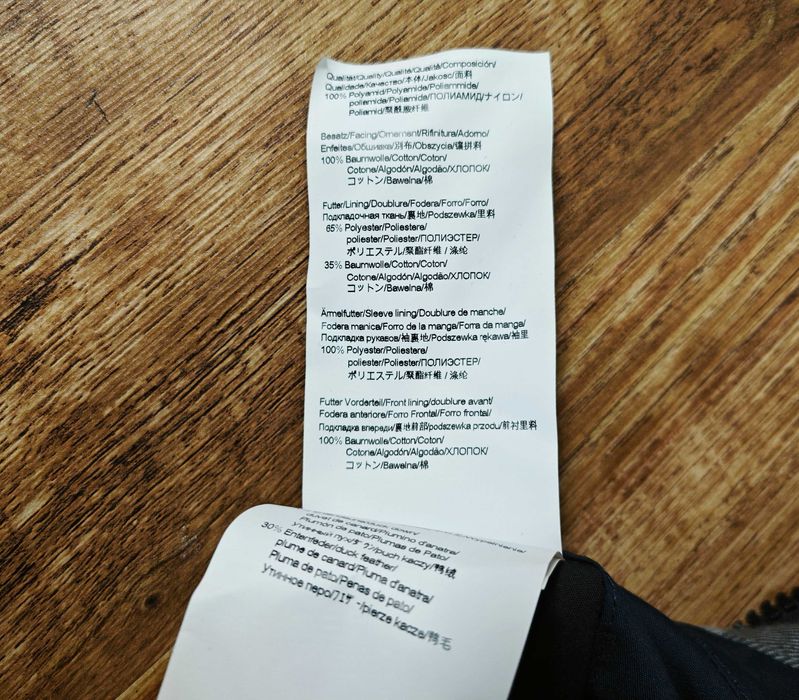 Qualität/Quality/Qualité/Qualità/Composición/
Qualidade/Качество/本体/Jakosc/面料
100% Polyamid/Polyamide/Poliammide/
poliamida/Poliamida/ПОЛИАМИД/ナイロン/
Poliamid/聚酰胺纤维
Besatz/Facing/Ornement/Rifinitura/Adorno/
Enfeites/Обшивка/別布/Obszycia/镶拼料
100% Baumwolle/Cotton/Coton/
Cotone/Algodón/Algodão/ХЛОПОК/
コットン/Bawelna/棉
Futter/Lining/Doublure/Fodera/Forro/Forro/
Подкладочная ткань/裏地/Podszewka/里料
65% Polyester/Poliestere/
poliester/Poliester/ПОЛИЭСТЕР/
ポリエステル/聚酯纤维 / 涤纶
35% Baumwolle/Cotton/Coton/
Cotone/Algodón/Algodão/ХЛОПОК/
コットン/Bawelna/棉
Ärmelfutter/Sleeve lining/Doublure de manche/
Fodera manica/Forro de la manga/Forra da manga/
Подкладка рукавов/袖裏地/Podszewka rękawa/袖里
100% Polyester/Poliestere/
poliester/Poliester/ПОЛИЭСТЕР/
ポリエステル/聚酯纤维 / 涤纶
Futter Vorderteil/Front lining/doublure avant/
Fodera anteriore/Forro Frontal/Forro frontal/
Подкладка впереди/裏地前部/podszewka przodu/前衬里料
100% Baumwolle/Cotton/Coton/
Cotone/Algodón/Algodão/ХЛОПОК/
コットン/Bawelna/棉
duvet de canard/Piumino d'anatra/
Plumón de pato/Plumas de Pato/
Утиный пух/ダウン/puch kaczy/鸭绒
30% Entenfeder/duck feather/
plume de canard/Piuma d'anatra/
Pluma de pato/Penas de pato/
Утиное перо/フェザー/pierze kacze/鸭毛